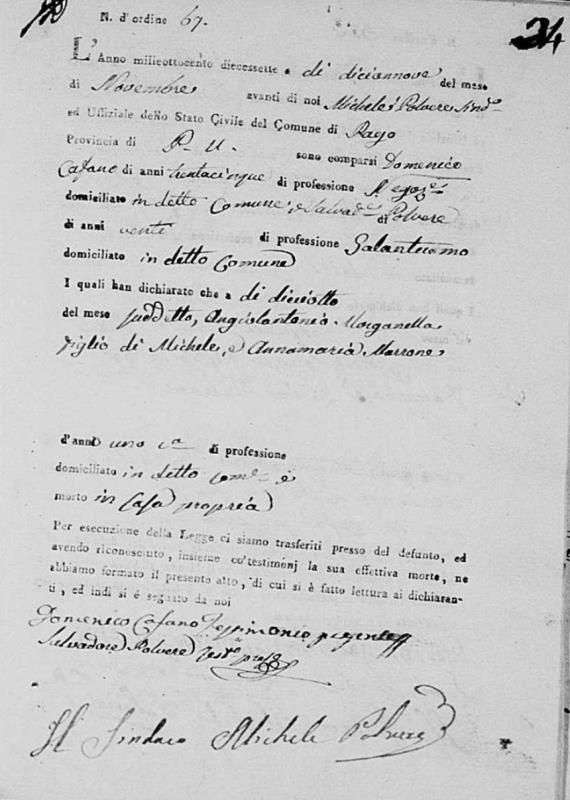 N. d'ordine 67.
24
L'Anno milleottocento diecessette a dì diciannove del mese
di Novembre avanti di noi Michele Polvere Sind.o
ed Uffiziale dello Stato Civile del Comune di Pago
Provincia di P. U. sono comparsi Domenico
Cafano di anni trentacinque di professione Negoz.e
domiciliato in detto Comune, e Salvad.e Polvere
di anni venti di professione Galantuomo
domiciliato in detto Comune
I quali han dichiarato che a dì dieciotto
del mese suddetto, Angiolantonio Morganella
figlio di Michele, e Annamaria Marrone
d'anni uno c.a di professione
domiciliato in detto Com.e è
morto in Casa propria
Per esecuzione della Legge ci siamo trasferiti presso del defunto, ed
avendo riconosciuto, insieme co'testimonj la sua effettiva morte, ne
abbiamo formato il presente atto, di cui si è fatto lettura ai dichiaran-
ti, ed indi si é segnato da noi
Domenico Cafano Tesstimonio
Salvadore Polvere Test.e
Il Sindaco Michele Polvere